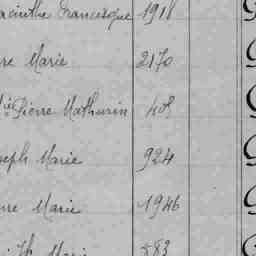 acinthe Francesque 1918
re Marie 2170
Pierre Mathurin 408
seph Marie 924
rre Marie 1946
Marie 583